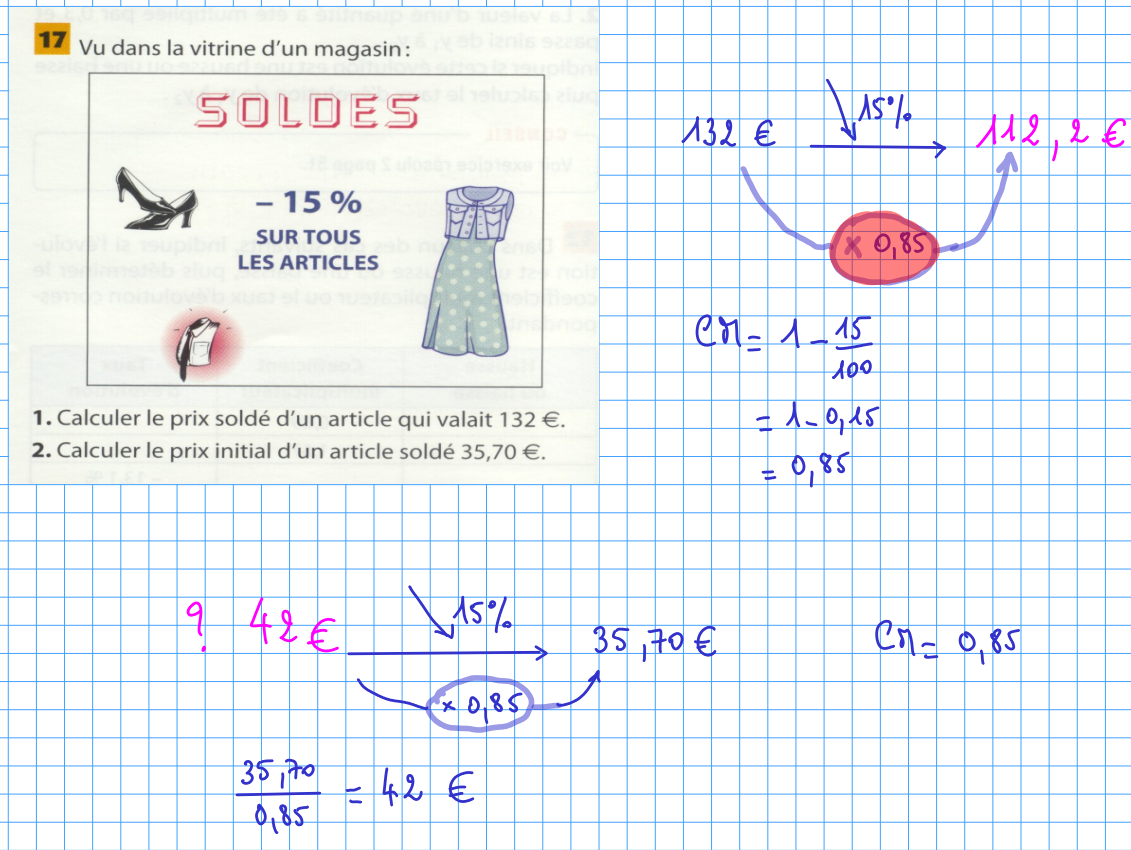 17 Vu dans la vitrine d'un magasin :
SOLDES
– 15 %
SUR TOUS
LES ARTICLES
1. Calculer le prix soldé d'un article qui valait 132 €.
2. Calculer le prix initial d'un article soldé 35,70 €.
132 € 15% 112,2 €
× 0,85
CM = 1 - 15/100
= 1 - 0,15
= 0,85
? 42 € 15% 35,70 € CM = 0,85
× 0,85
35,70/0,85 = 42 €